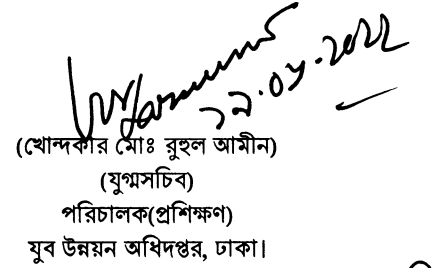 (খোন্দকার মোঃ রুহুল আমীন)
(যুগ্মসচিব)
পরিচালক(প্রশিক্ষণ)
যুব উন্নয়ন অধিদপ্তর, ঢাকা।